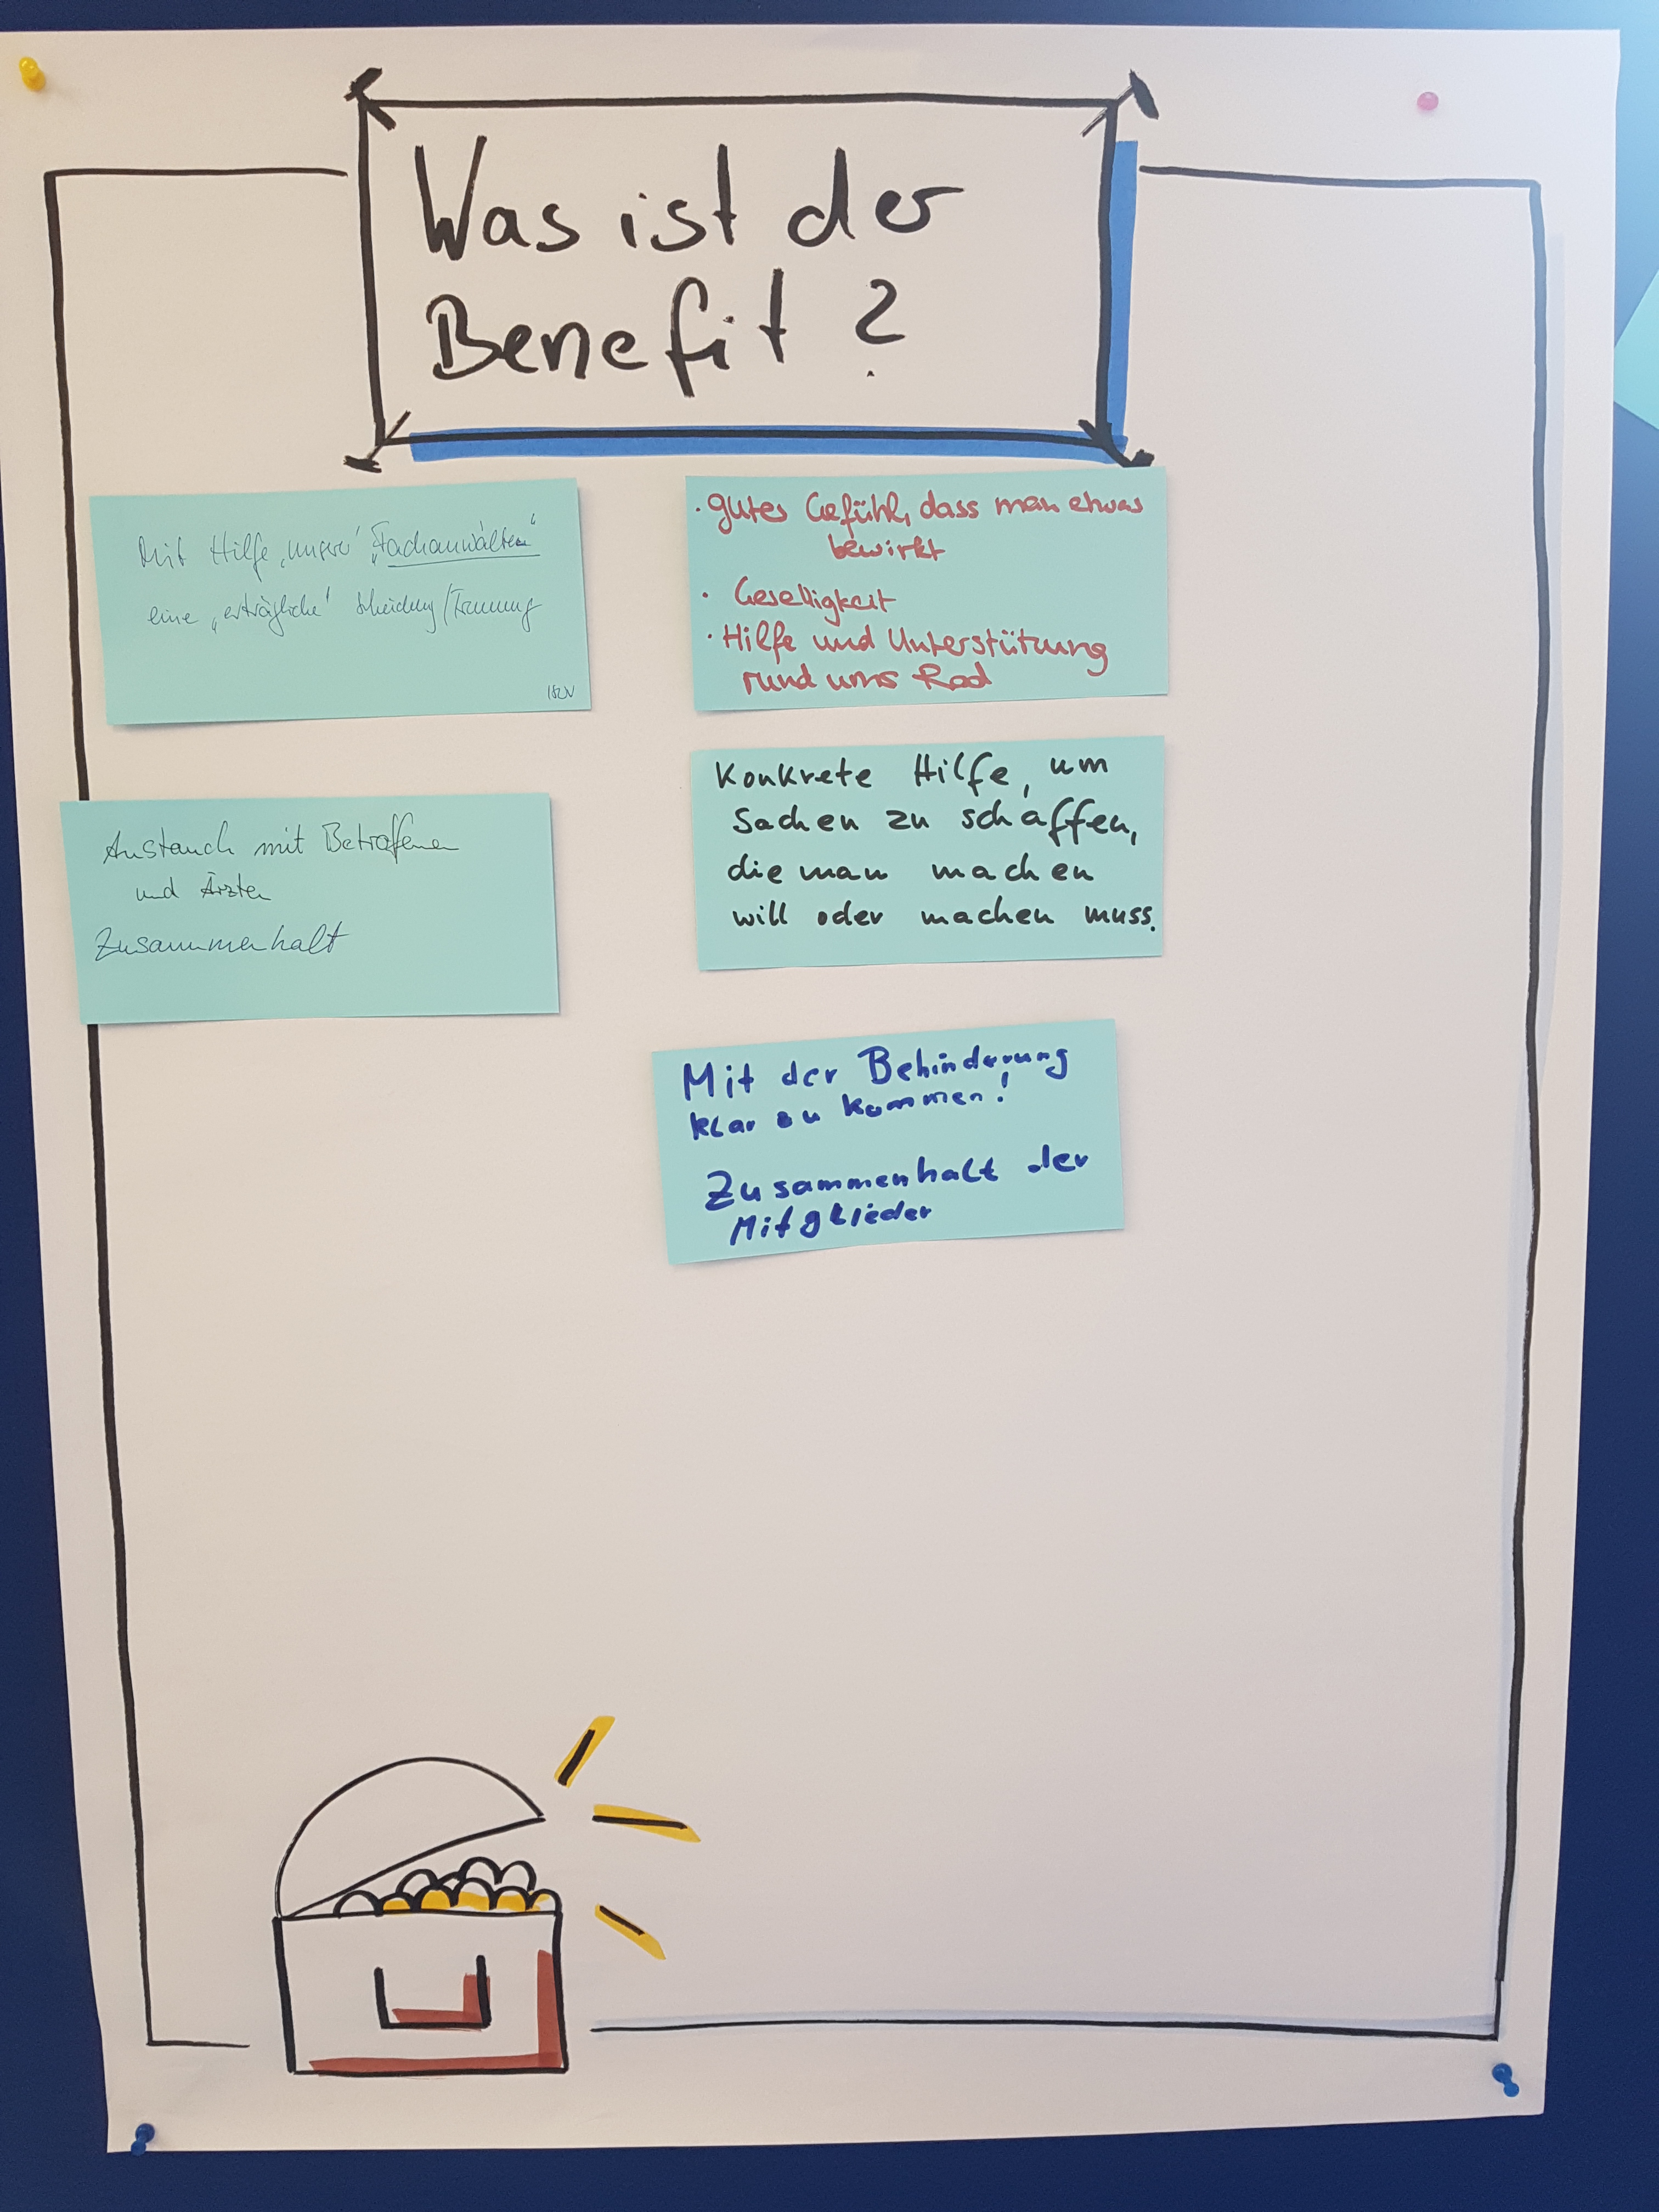 Was ist der
Benefit?
Mit Hilfe „unserer" „Fachanwälten"
eine „erträgliche" Scheidung/Trennung
ISUV
Austauch mit Betroffenen
und Ärzten
Zusammenhalt
· gutes Gefühl, dass man etwas
bewirkt
· Geselligkeit
· Hilfe und Unterstützung
rund ums Rad
Konkrete Hilfe, um
Sachen zu schaffen,
die man machen
will oder machen muss.
Mit der Behinderung
klar zu kommen!
Zusammenhalt der
Mitglieder